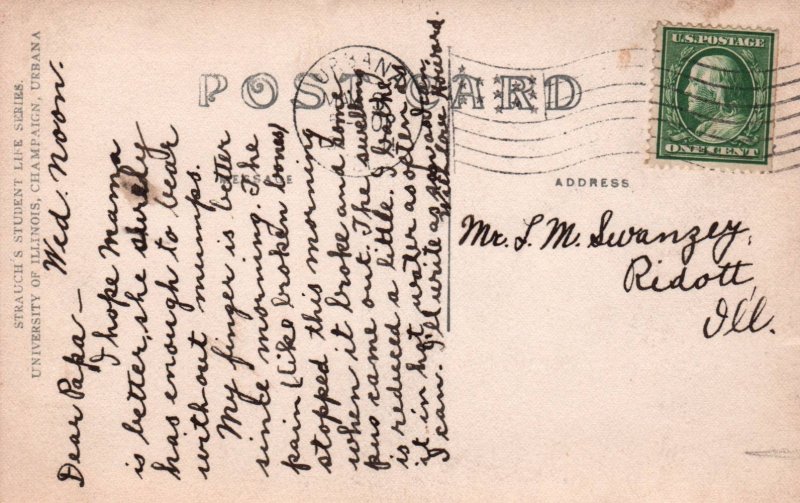 STRAUCH'S STUDENT LIFE SERIES.
UNIVERSITY OF ILLINOIS, CHAMPAIGN, URBANA
POST CARD
ADDRESS
U.S. POSTAGE
ONE CENT
URBANA
Wed. Noon.
Dear Papa—
I hope Mama
is better, she surely
has enough to bear
without mumps.
My finger is better
since morning. The
pain (like broken bones)
stopped this morning
when it broke and some
pus came out. The swelling
is reduced a little. I bathe
it in hot water as often as
I can. I'll write as soon as I can.
With love Howard.
Mr. L. M. Swanzey,
Ridott,
Ill.